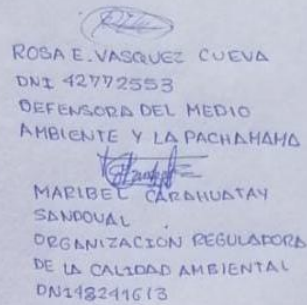 ROSA E. VASQUEZ CUEVA
DNI 42772553
DEFENSORA DEL MEDIO
AMBIENTE Y LA PACHAMAMA
MARIBEL CARAHUATAY
SANDOVAL
ORGANIZACION REGULADORA
DE LA CALIDAD AMBIENTAL
DNI48241613